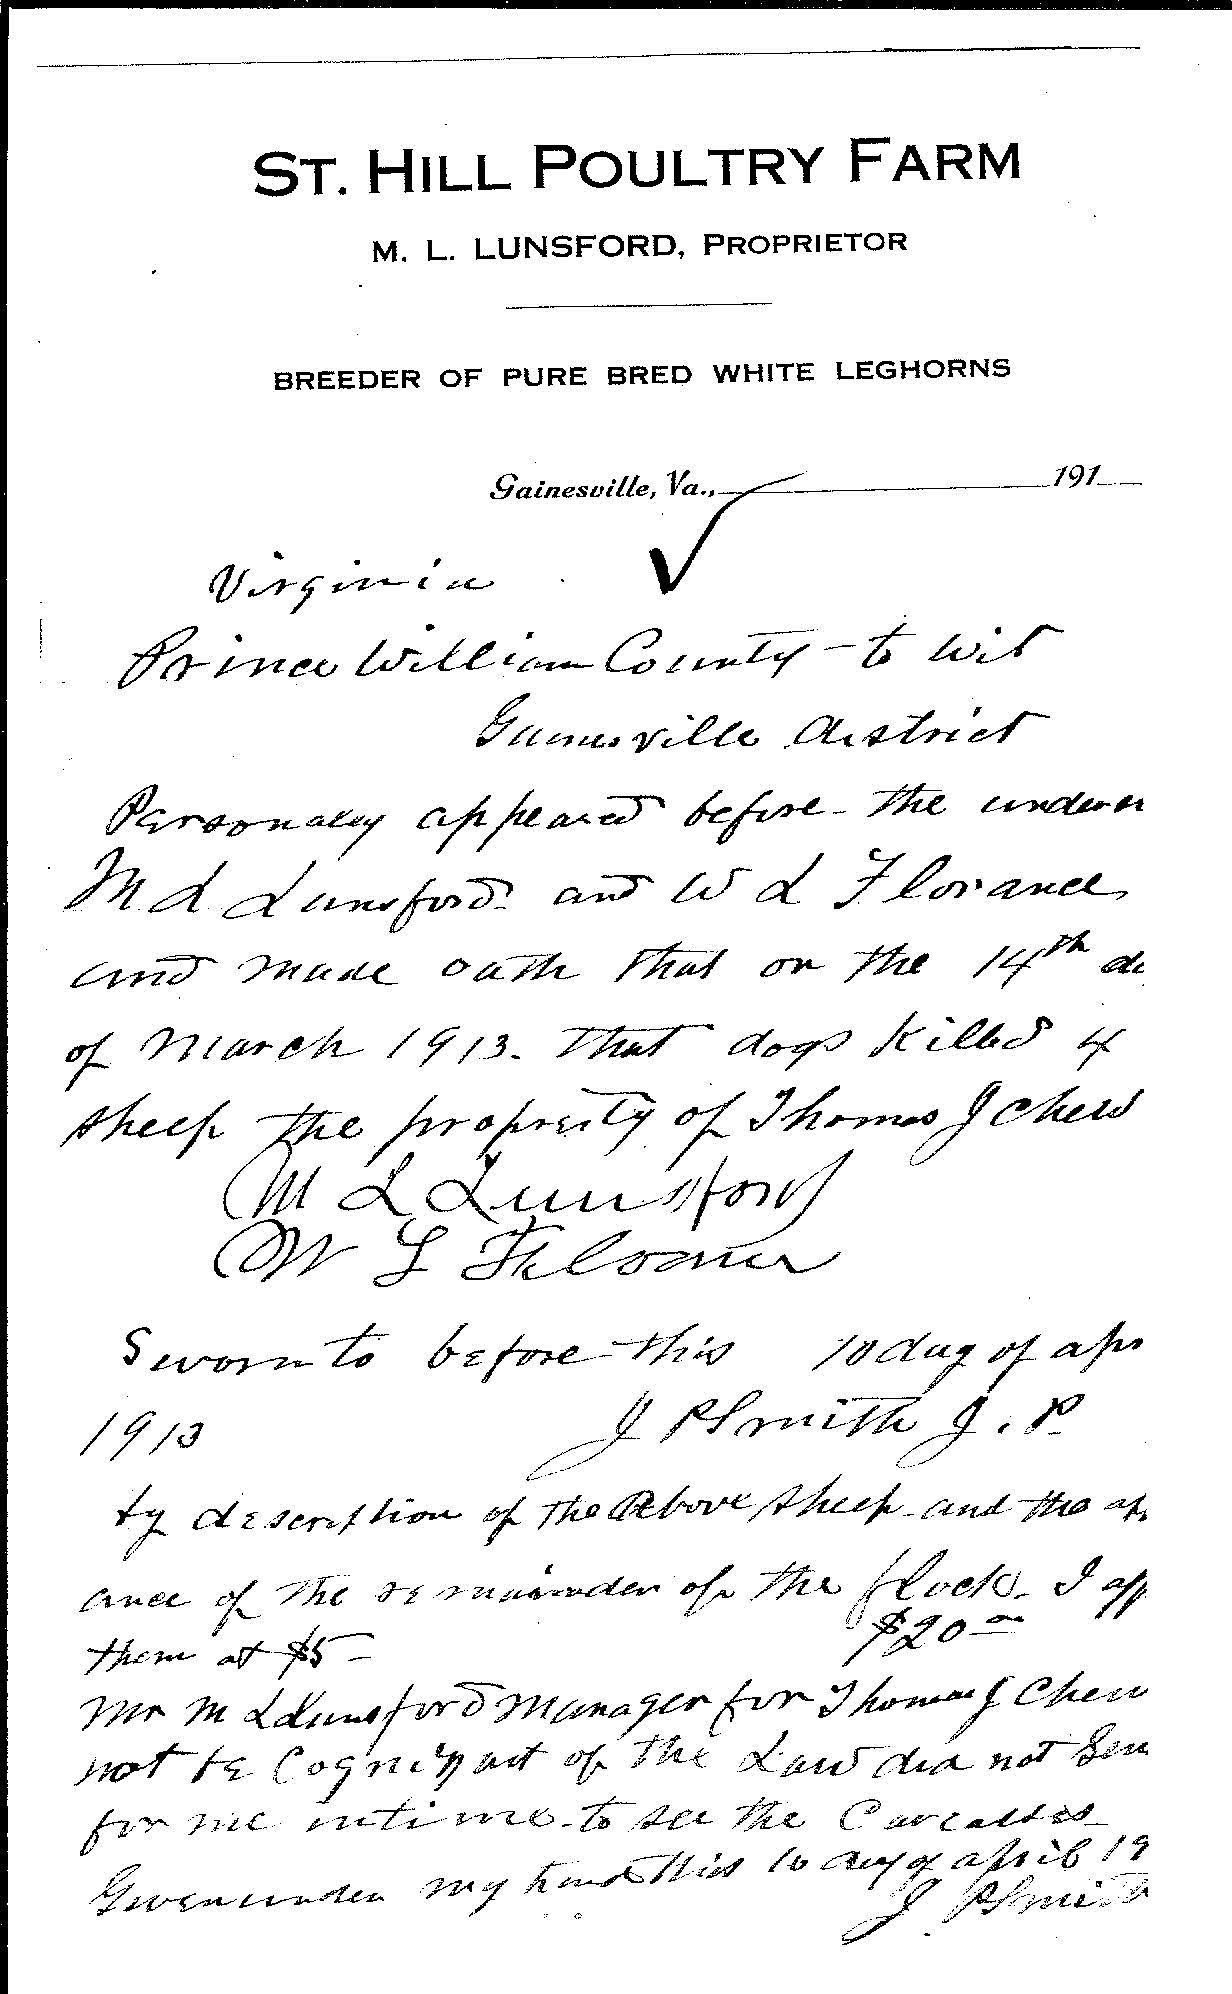 ST. HILL POULTRY FARM
M. L. LUNSFORD, PROPRIETOR
BREEDER OF PURE BRED WHITE LEGHORNS
Gainesville, Va., 191
Virginia
Prince William County - to wit
Gainesville district
Personaley appeared before the under
M L Lunsford and W L Florance
and made oath that on the 14th da
of March 1913. That dogs killed 4
sheep the property of Thomas J Chew
M L Lunsford
W L
Sworn to before this 10 day of apr
1913 J P Smith J. P.
by description of the above sheep and the ap
ance of the remainder of the flock. I app
them at $5 - $20 00
Mr M L Lunsford Manager for Thomas J Chew
not be Cognizant of the Law did not sen
for me in time to see the Carcasses
Given under my hand this 10 day of april 19
J P Smith